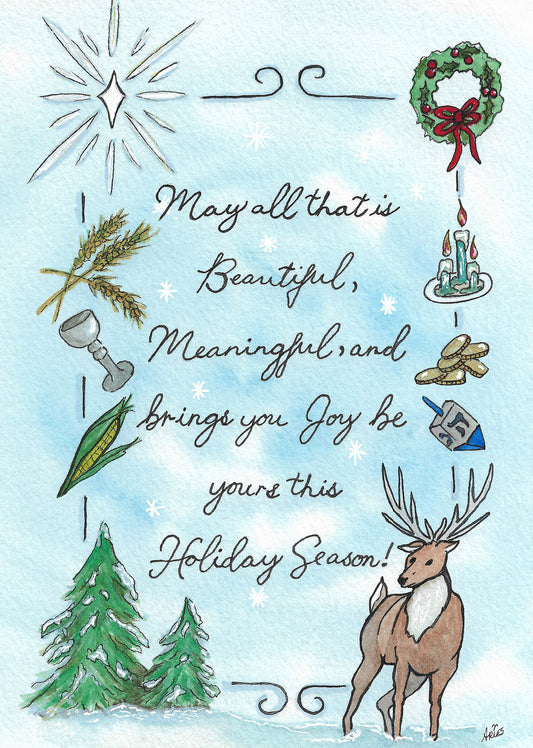 May all that is
Beautiful,
Meaningful, and
brings you Joy be
yours this
Holiday Season!
Aries